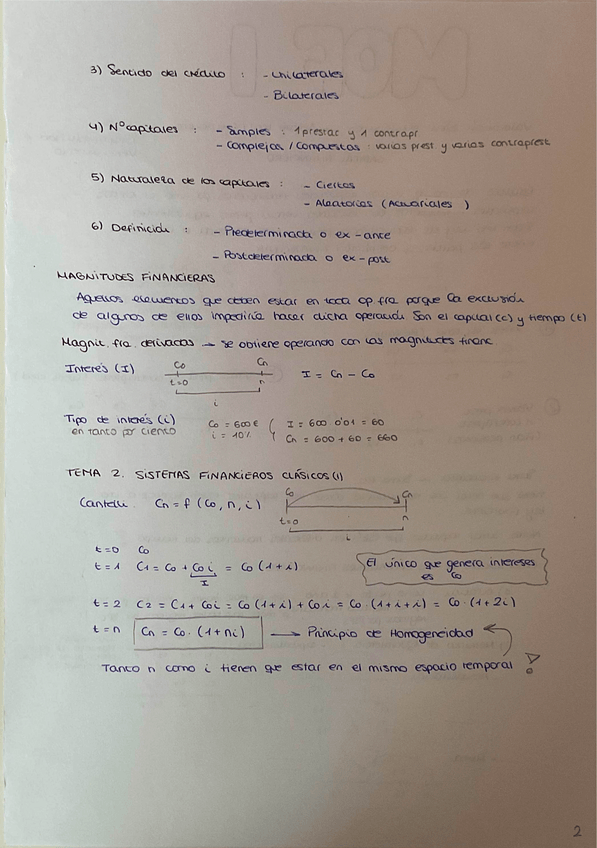 3) Sentido del crédito : - Unilaterales
- Bilaterales
4) Nº capitales : - Simples : 1 prestac y 1 contrapr
- Complejas / Compuestas : varias prest y varias contraprest
5) Naturaleza de los capitales : - Ciertos
- Aleatorios (Actuariales )
6) Definición : - Predeterminada o ex-ance
- Postdeterminada o ex-post
MAGNITUDES FINANCIERAS
Aquellos elementos que deben estar en toda op fra porque la exclusión
de algunos de ellos impediría hacer dicha operación Son el capital (c) y tiempo (t)
Magnit. fra. derivadas → se obtiene operando con las magnitudes financ
Interés (I) Co Cn I = Cn - Co
t=0 n
i
Tipo de interés (i) Co = 600€ I = 600 0'01 = 60
en tanto por ciento i = 10% Cn = 600 + 60 = 660
TEMA 2. SISTEMAS FINANCIEROS CLÁSICOS (1)
Cn = f (Co, n, i) Co Cn
t=0 n
i
t=0 Co
t=1 C1 = Co + Co i = Co (1+i) El único que genera intereses
I es Co
t=2 C2 = C1 + Coi = Co (1+i) + Co i = Co · (1+i+i) = Co · (1+2i)
t=n Cn = Co · (1+ni) → Principio de Homogeneidad
Tanto n como i tienen que estar en el mismo espacio temporal !
2